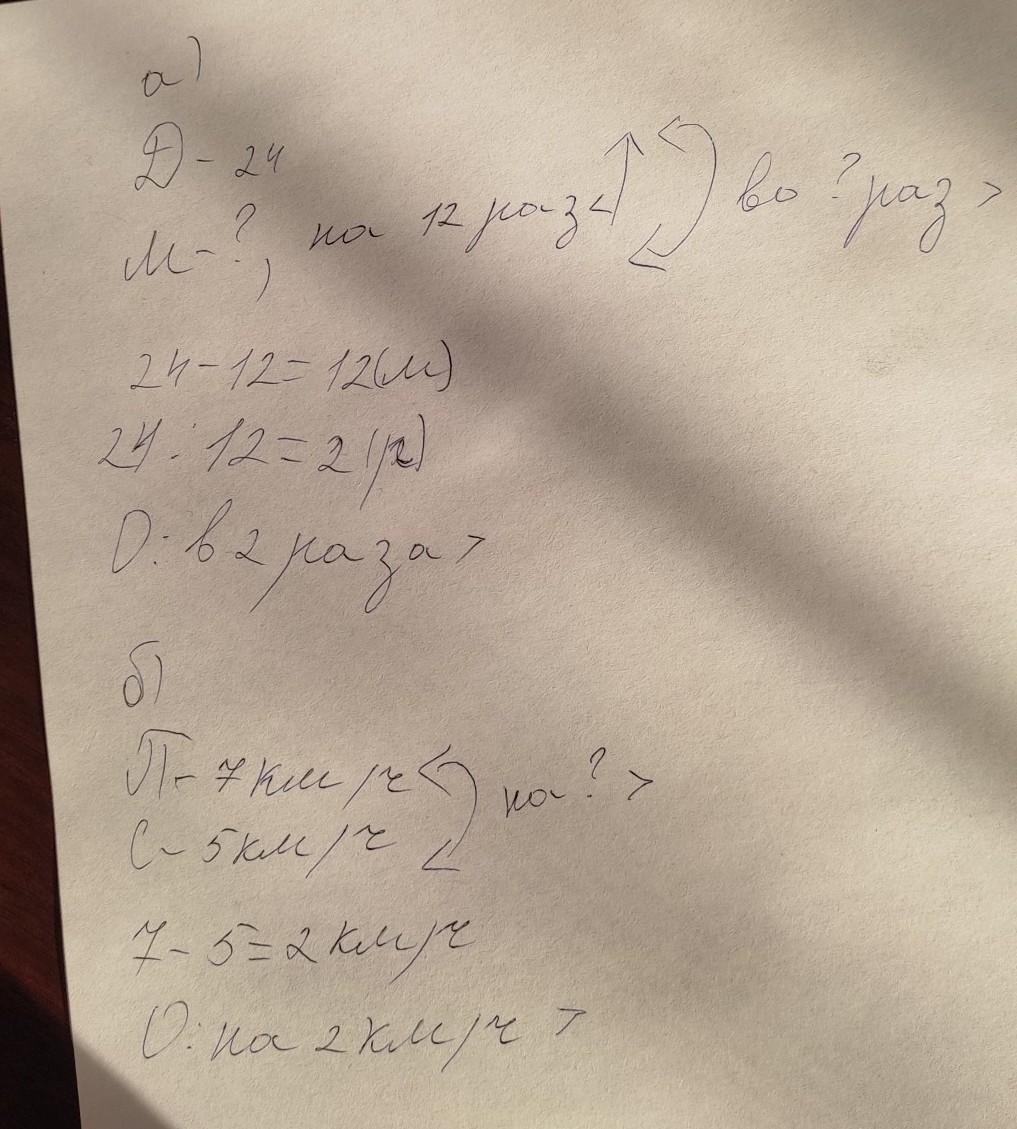 а)
Д - 24
М - ?, на 12 раз < во ? раз >
24 - 12 = 12 (м)
24 : 12 = 2 (р)
О: в 2 раза >
б)
П - 7 км/ч на ? >
С - 5 км/ч
7 - 5 = 2 км/ч
О: на 2 км/ч >